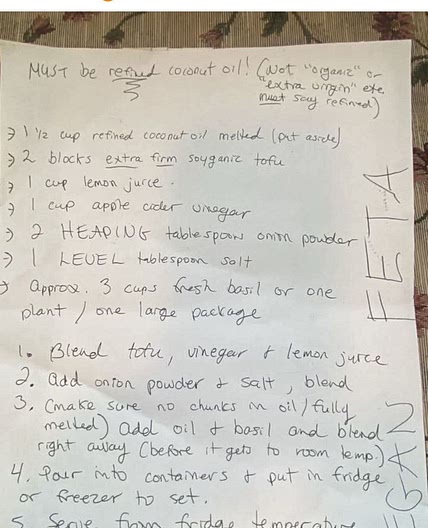 MUST be refined coconut oil! (Not "organic" or
"extra virgin" etc
must say refined)
→ 1 1/2 cup refined coconut oil melted (put aside)
→ 2 blocks extra firm soyganic tofu
→ 1 cup lemon juice.
→ 1 cup apple cider vinegar
→ 2 HEAPING tablespoons onion powder
→ 1 LEVEL tablespoon salt
→ Approx. 3 cups fresh basil or one
plant / one large package
FETA
1. Blend tofu, vinegar & lemon juice
2. Add onion powder & salt, blend
3. (make sure no chunks in oil/fully
melted) add oil & basil and blend
right away (before it gets to room temp.)
4. Pour into containers & put in fridge
or freezer to set.
5. Serve from fridge temperature